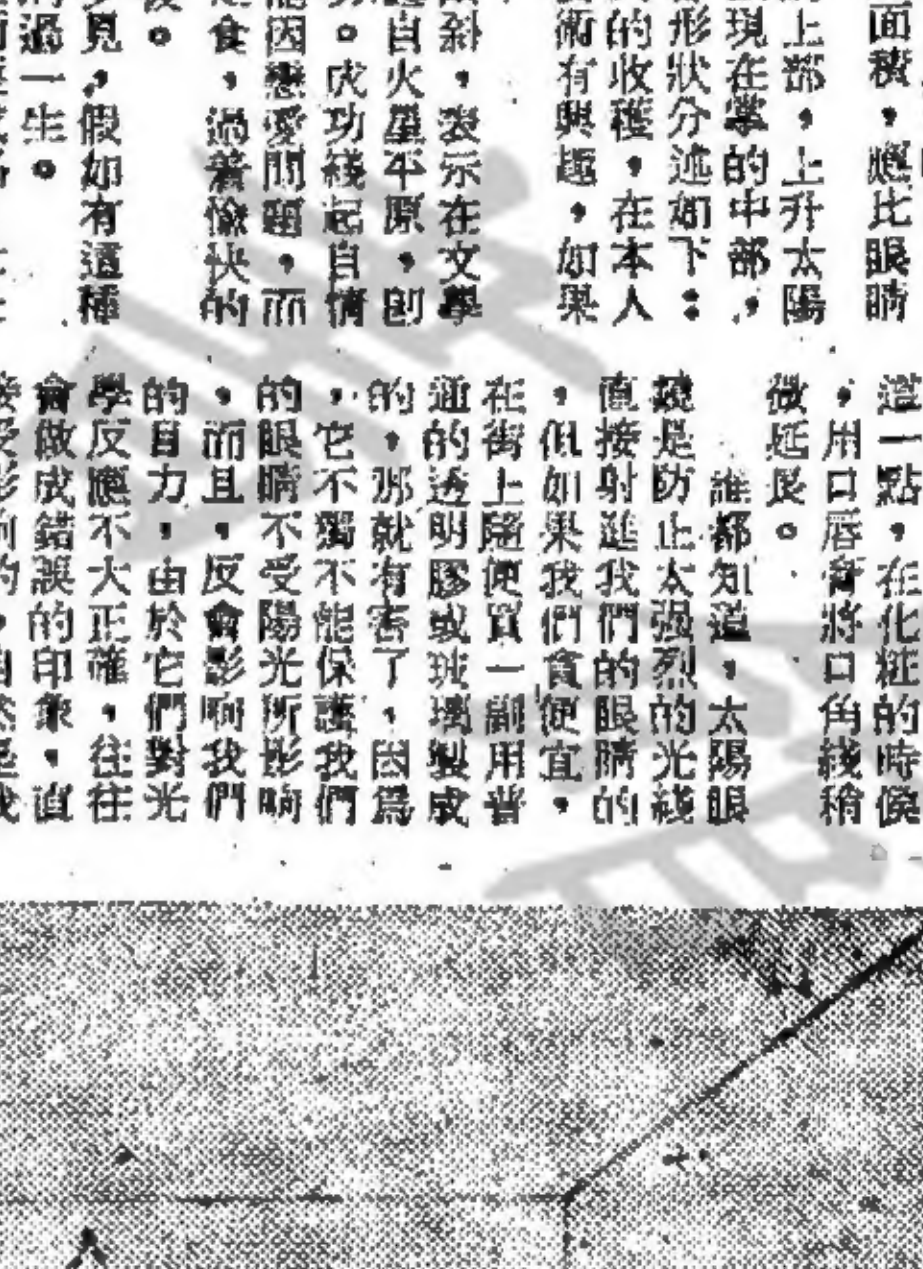 面積，應比眼睛
上部，上升太陽
現在掌的中部，
形狀分述如下：
的收穫，在本人
術有興趣，如果
斜，表示在文學
自火星平原，則
。成功綫起自情
因戀愛問題，而
食，過着愉快的
。
見，假如有這種
過一生。
這一點，在化粧的時候
，用口唇膏將口角綫稍
微延長。
誰都知道，太陽眼
鏡是防止太强烈的光綫
直接射進我們的眼睛的
，但如果我們貪便宜，
在街上隨便買一副用普
通的透明膠或玻璃製成
的，那就有害了，因爲
，它不獨不能保護我們
的眼睛不受陽光所影响
，而且，反會影响我們
的目力，由於它們對光
學反應不大正確，往往
會做成錯誤的印象，直